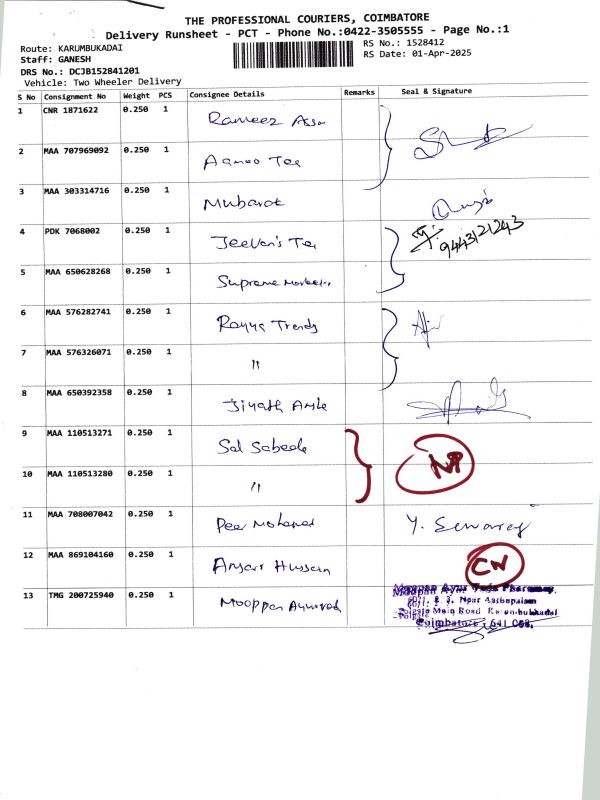 THE PROFESSIONAL COURIERS, COIMBATORE
Delivery Runsheet - PCT - Phone No.:0422-3505555 - Page No.:1
Route: KARUMBUKADAI
RS No.: 1528412
Staff: GANESH
RS Date: 01-Apr-2025
DRS No.: DCJB152841201
Vehicle: Two Wheeler Delivery
S No Consignment No Weight PCS Consignee Details Remarks Seal & Signature
1 CNR 1871622 0.250 1 Rameez
2 MAA 707969092 0.250 1
3 MAA 303314716 0.250 1 Mubarak
4 PDK 7068002 0.250 1 Jeevan's Tex
9443121243
5 MAA 650628268 0.250 1 Supreme
6 MAA 576282741 0.250 1 Rayya Trends
7 MAA 576326071 0.250 1 "
8 MAA 650392358 0.250 1
9 MAA 110513271 0.250 1 Sal Sabeele
NP
10 MAA 110513280 0.250 1 "
11 MAA 708007042 0.250 1 Peer Mohamed
12 MAA 869104160 0.250 1 Ansari Hussain CN
13 TMG 200725940 0.250 1 Mooppan Ayurved
Moopan Ayur Veda Pharmacy
Main Road
Coimbatore